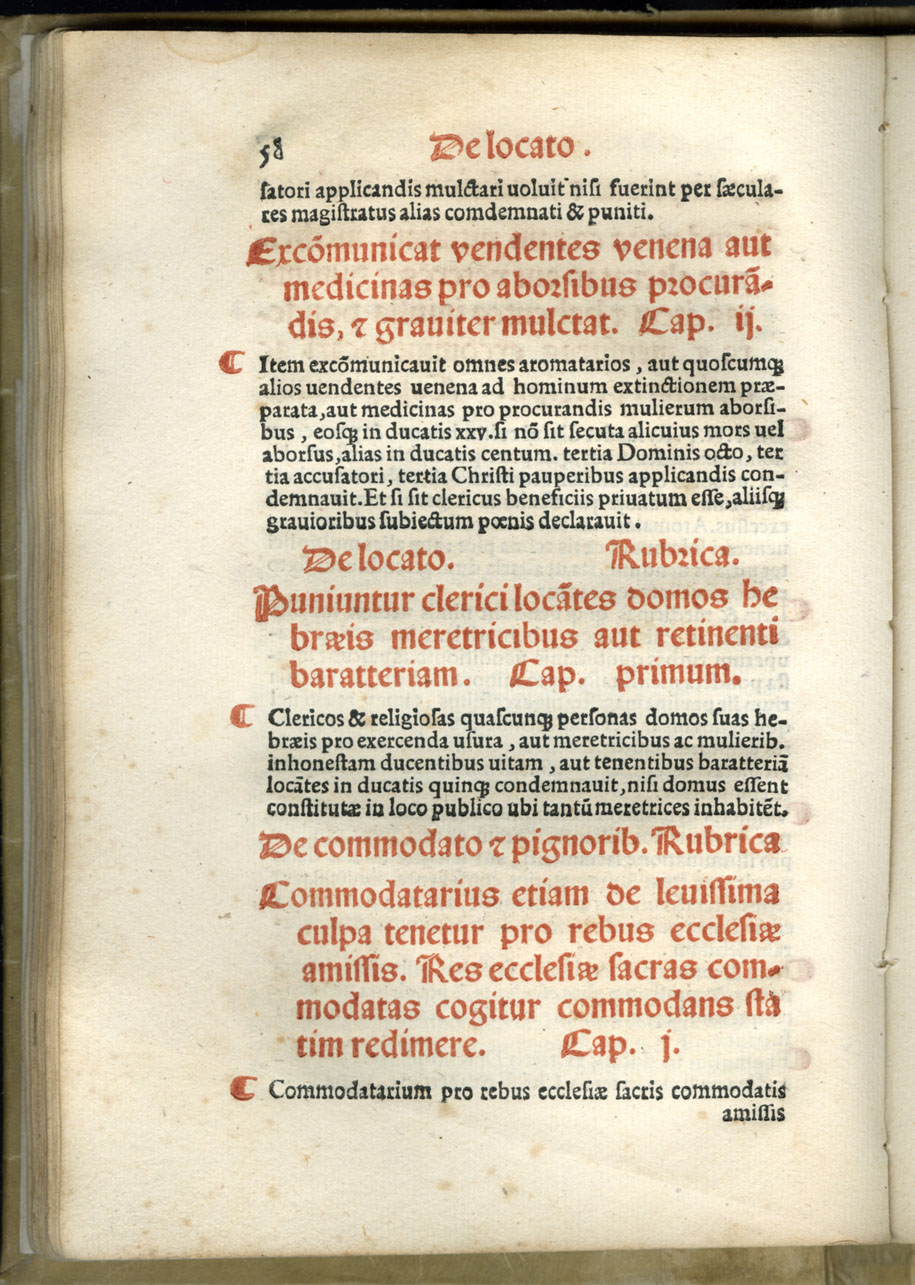 58 De locato.
satori applicandis mulctari uoluit nisi fuerint per sæcula-
res magistratus alias comdemnati & puniti.
Excōmunicat vendentes venena aut
medicinas pro aborsibus procurā-
dis, ⁊ grauiter mulctat. Cap. ij.
Item excōmunicauit omnes aromatarios, aut quoscumqꝫ
alios uendentes uenena ad hominum extinctionem præ-
parata, aut medicinas pro procurandis mulierum aborsi-
bus, eosqꝫ in ducatis xxv. si nō sit secuta alicuius mors uel
aborsus, alias in ducatis centum. tertia Dominis octo, ter
tia accusatori, tertia Christi pauperibus applicandis con-
demnauit. Et si sit clericus beneficiis priuatum esse, aliisqꝫ
grauioribus subiectum pœnis declarauit.
De locato. Rubrica.
Puniuntur clerici locātes domos he
bræis meretricibus aut retinenti
baratteriam. Cap. primum.
Clericos & religiosas quascunqꝫ personas domos suas he-
bræis pro exercenda usura, aut meretricibus ac mulierib.
inhonestam ducentibus uitam, aut tenentibus baratteriā
locātes in ducatis quinqꝫ condemnauit, nisi domus essent
constitutæ in loco publico ubi tantū meretrices inhabitēt.
De commodato ⁊ pignorib. Rubrica
Commodatarius etiam de leuissima
culpa tenetur pro rebus ecclesiæ
amissis. Res ecclesiæ sacras com-
modatas cogitur commodans sta
tim redimere. Cap. j.
Commodatarium pro rebus ecclesiæ sacris commodatis
amissis